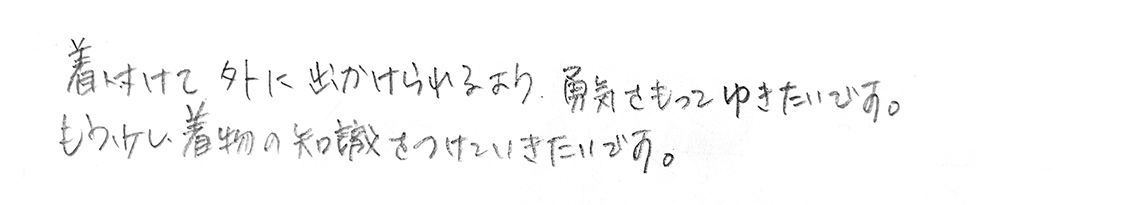 着付けて 外に 出かけられるより、勇気をもってゆきたいです。
もう少し着物の知識をつけていきたいです。